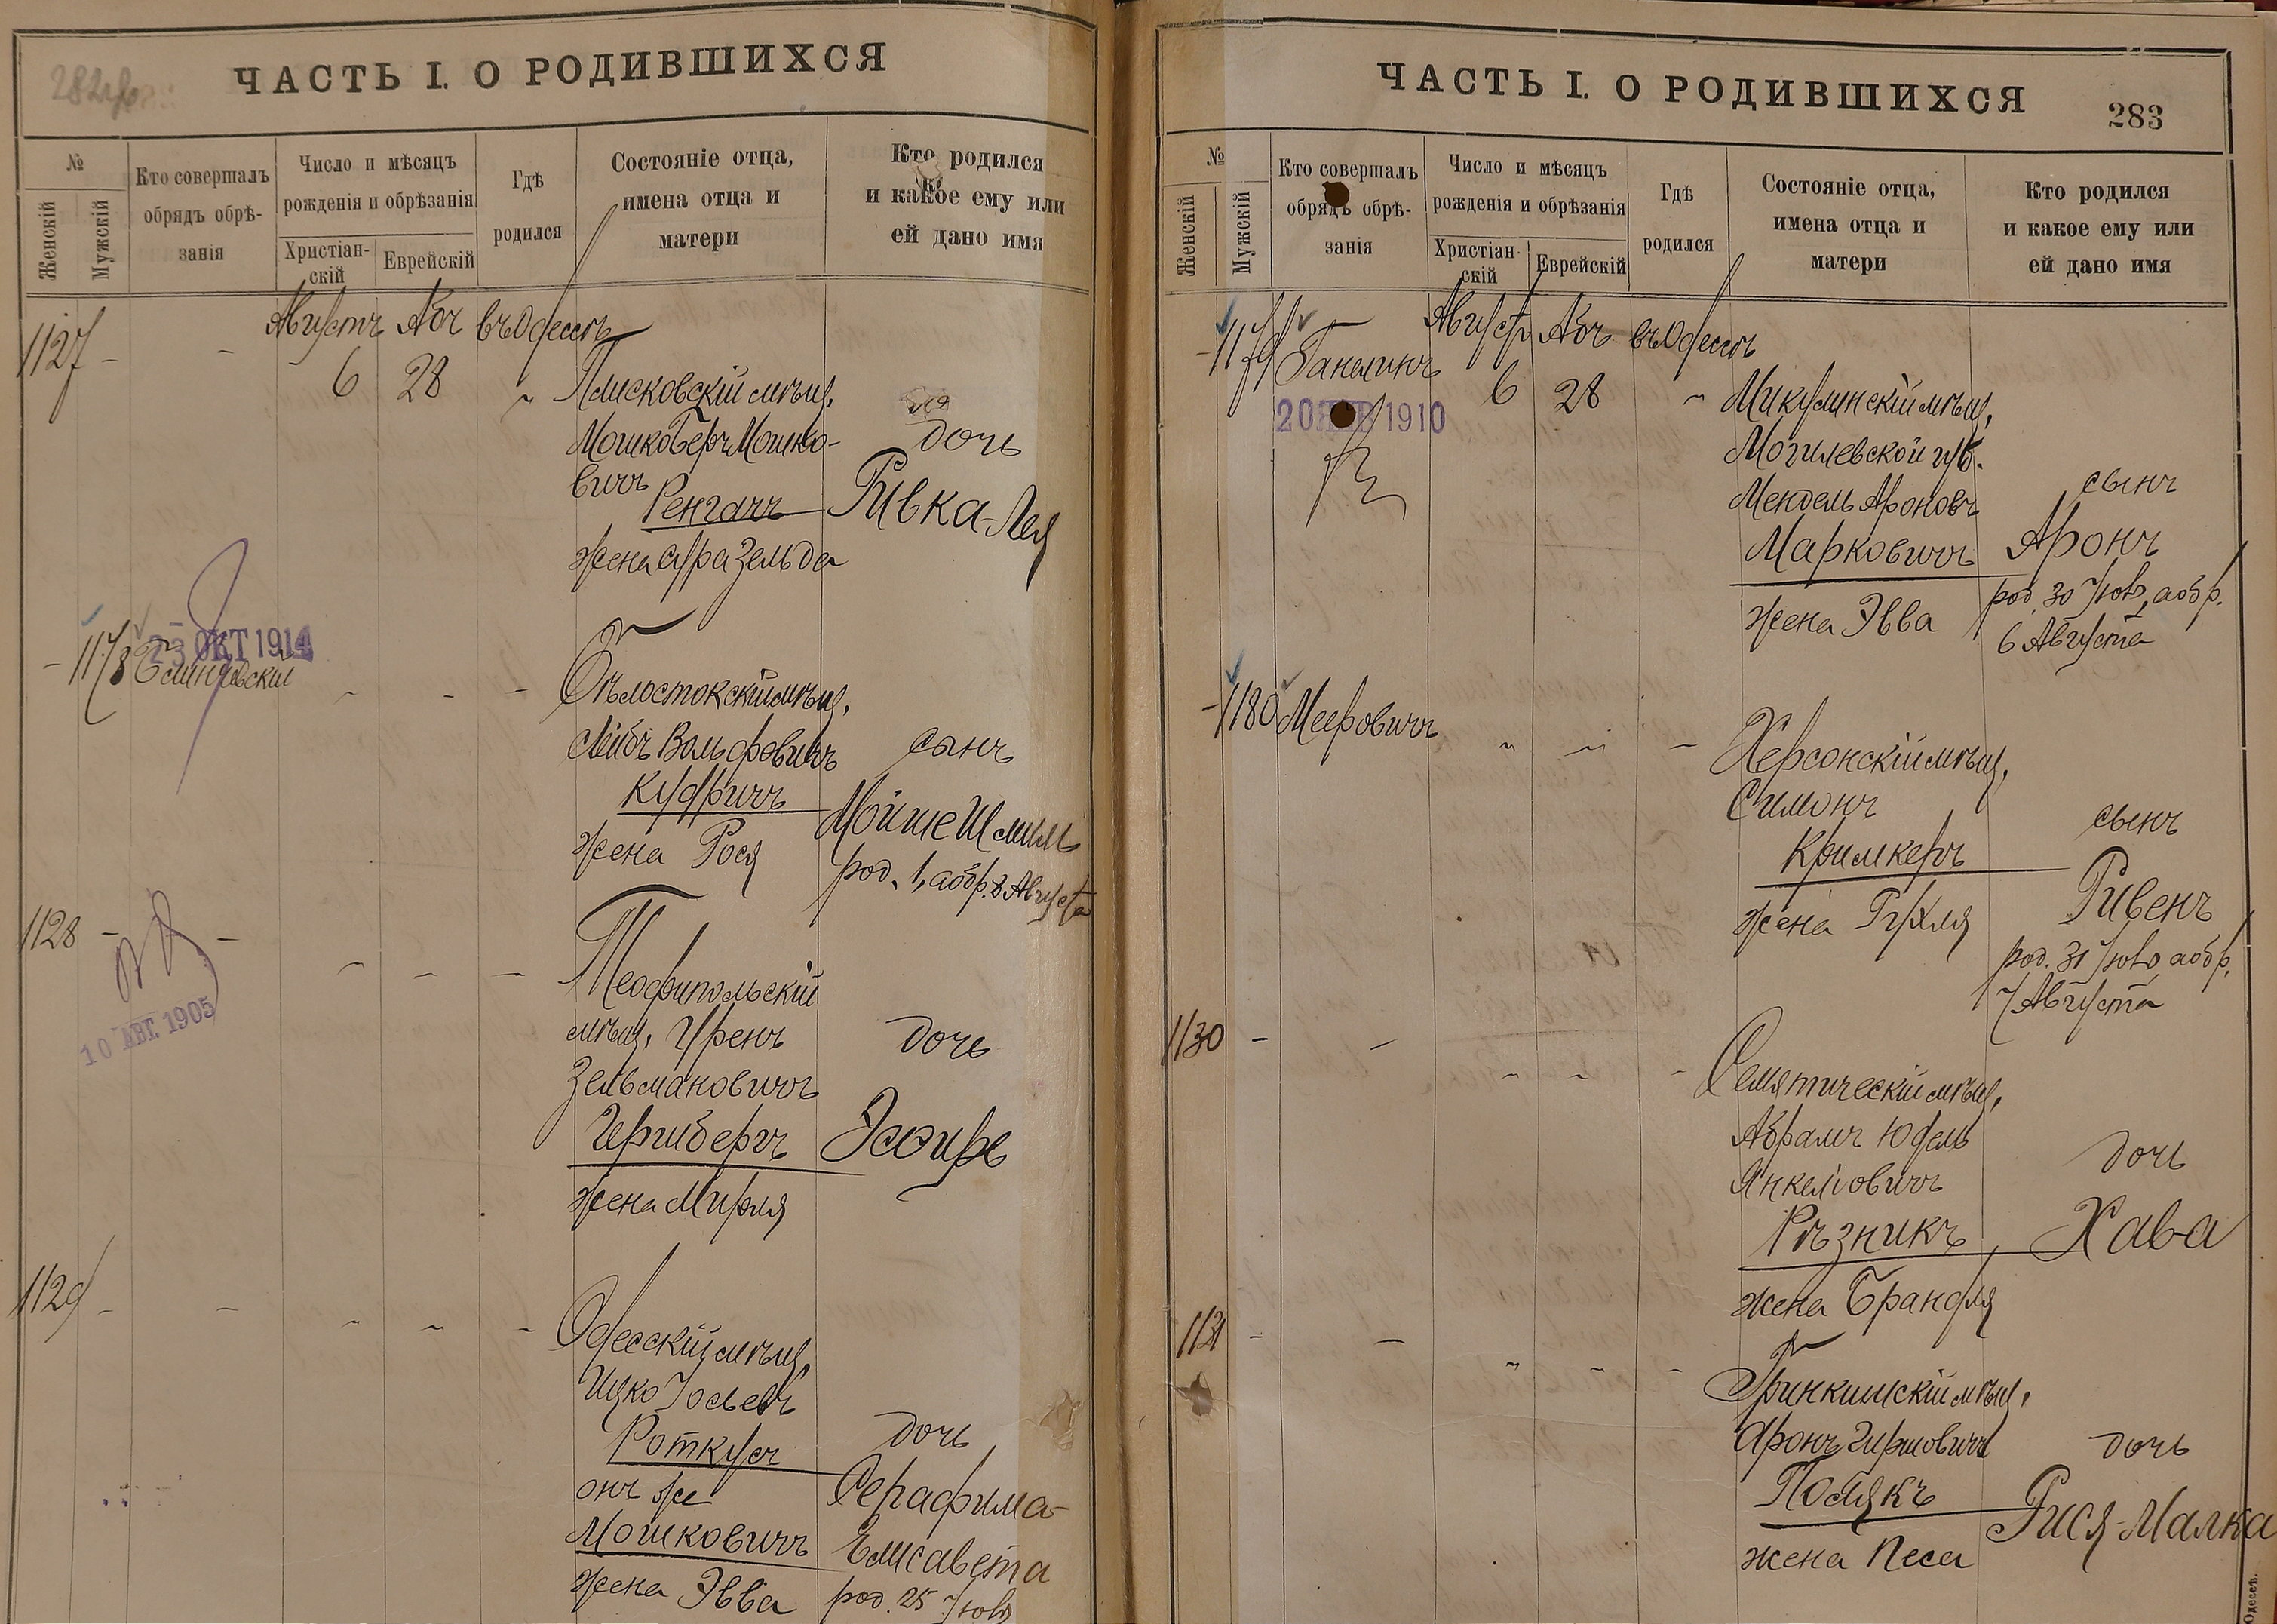 282об
ЧАСТЬ I. О РОДИВШИХСЯ
№
Женскій
Мужскій
Кто совершалъ
обрядъ обрѣ-
занія
Число и мѣсяцъ
рожденія и обрѣзанія
Христіан-
скій
Еврейскій
Гдѣ
родился
Состояніе отца,
имена отца и
матери
Кто родился
и какое ему или
ей дано имя
Августъ Авъ въ Одессѣ
1127 - -
6 28 "
Плисковскій мѣщ.
Мошко Беръ Мошко-
вичъ
Ренгачъ
жена Сура Зельда
дочь
Ривка-Лея
- 1178
23 ОКТ 1914
Бѣлостокскій мѣщ.
Лейбъ Вольфовичъ
Кудричъ
жена Рося
сынъ
Мойше Шмиль
род. 1, а обр. 8 Августа
1128 - -
10 АВГ. 1905
Теофипольскій
мѣщ. Уренъ
Зельмановичъ
Гершбергъ
жена Мирля
дочь
Эсѳирь
1129 - -
Одесскій мѣщ.
Ицко Іосьевъ
Роткусъ
онъ же
Мошковичъ
жена Эвва
дочь
Серафима-
Елисавета
род. 25 Іюля
ЧАСТЬ I. О РОДИВШИХСЯ
283
№
Женскій
Мужскій
Кто совершалъ
обрядъ обрѣ-
занія
Число и мѣсяцъ
рожденія и обрѣзанія
Христіан-
скій
Еврейскій
Гдѣ
родился
Состояніе отца,
имена отца и
матери
Кто родился
и какое ему или
ей дано имя
Августъ Авъ въ Одессѣ
- 1179 Ганелинъ
6 28 "
20 1910
Микулинскій мѣщ.
Могилевской губ.
Мендель Ароновъ
Марковичъ
жена Эвва
сынъ
Аронъ
род. 30 Іюля, а обр.
6 Августа
- 1180 Мееровичъ
Херсонскій мѣщ.
Симонъ
Кримкеръ
жена Рухля
сынъ
Рувенъ
род. 31 Іюля, а обр.
7 Августа
1130 - -
Семятическій мѣщ.
Абрамъ Юдель
Янкелiовичъ
Рѣзникъ,
жена Брандля
дочь
Хава
1131 - -
Гринкишскій мѣщ.
Аронъ Гиршовичъ
Полякъ
жена Песа
дочь
Рися-Малка
Одессѣ.